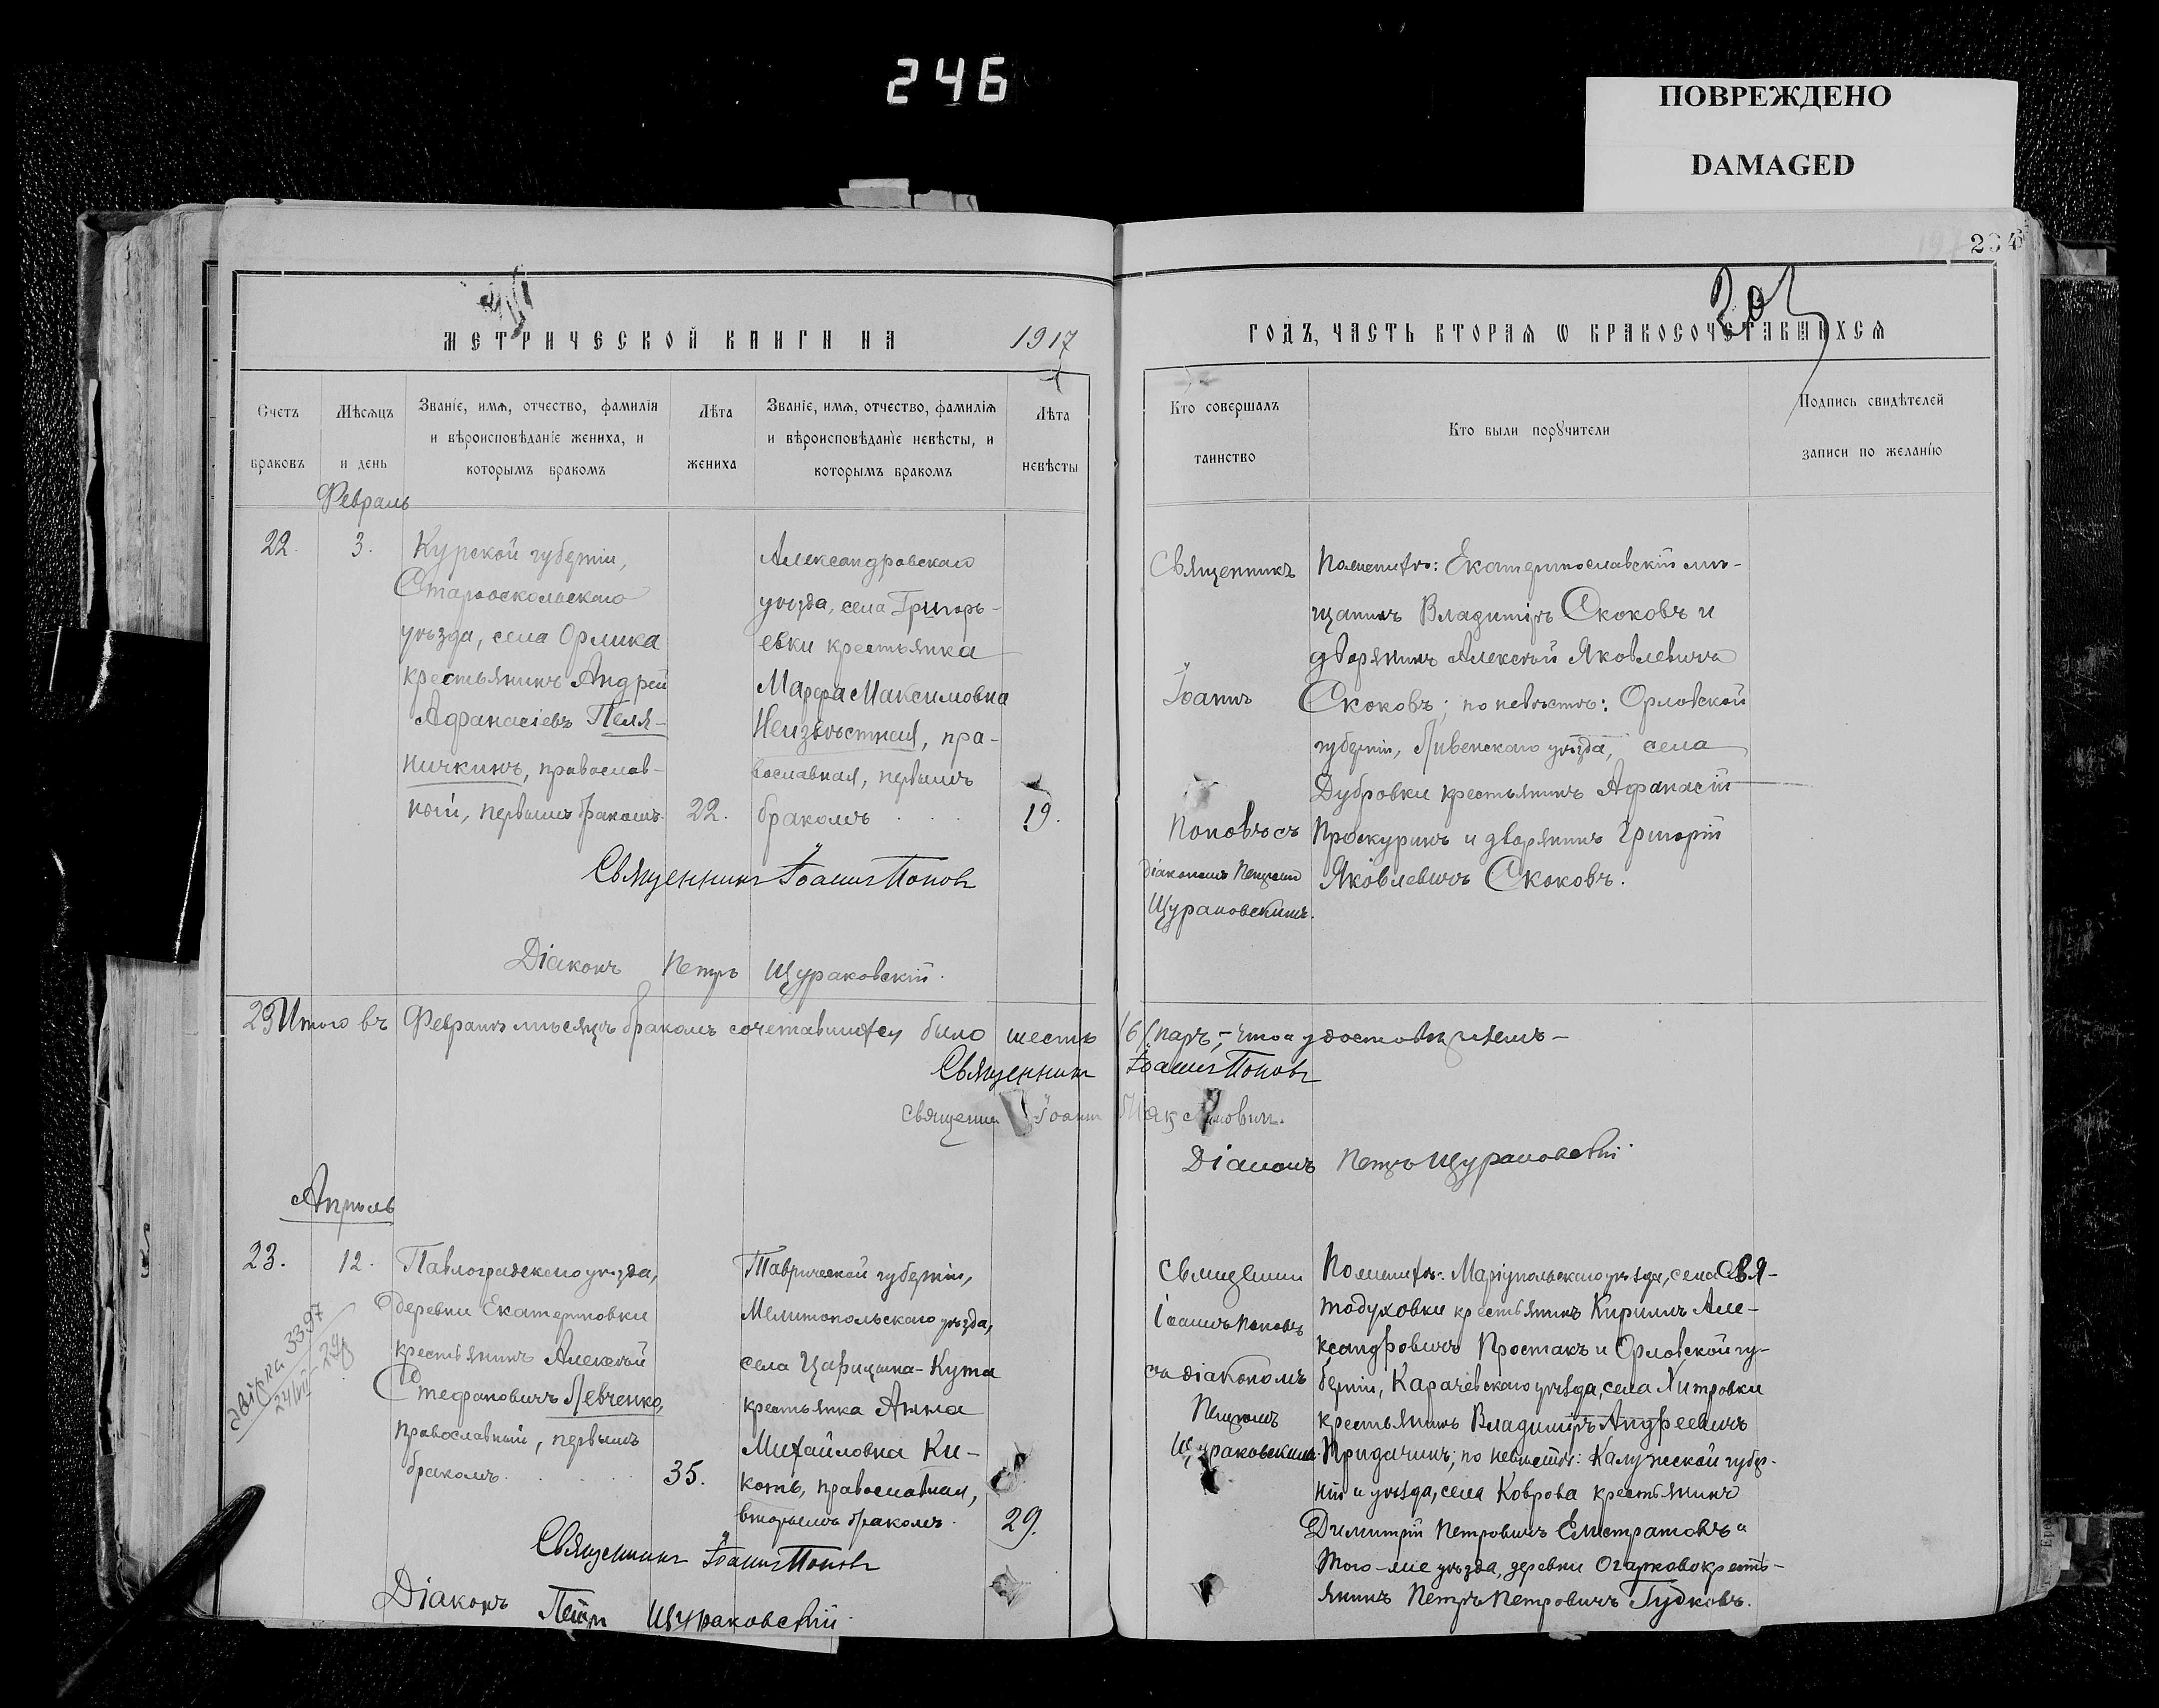 246
ПОВРЕЖДЕНО
DAMAGED
МЕТРИЧЕСКОЙ КНИГИ НА 1917
Счетъ браковъ
Мѣсяцъ и день
Званіе, имя, отчество, фамилія
и вѣроисповѣданіе жениха, и
которымъ бракомъ
Лѣта жениха
Званіе, имя, отчество, фамилія
и вѣроисповѣданіе невѣсты, и
которымъ бракомъ
Лѣта невѣсты
Февраль
22.
3.
Курской губерніи,
Старооскольскаго
уѣзда, села Орлика
крестьянинъ Андрей
Афанасіевъ Пеля-
ничкинъ, православ-
ный, первымъ бракомъ.
22.
Александровскаго
уѣзда, села Григорь-
евки крестьянка
Марфа Максимовна
Неизвѣстная, пра-
вославная, первымъ
бракомъ . . .
19.
Священникъ Іоаннъ Поповъ
Діаконъ Петръ Щураковскій.
Итого въ Февралѣ мѣсяцѣ бракомъ сочетавшихся было шесть /6/ паръ, – что и удостовѣряемъ –
Священникъ Іоаннъ Поповъ
Священни Іоанн Максимович.
Діаконъ Петръ Щураковскій
Апрѣль
23.
12.
Павлоградскаго уѣзда,
деревни Екатериновки
крестьянинъ Алексѣй
Стефановичъ Левченко,
православный, первымъ
бракомъ. . . . .
35.
Таврической губерніи,
Мелитопольскаго уѣзда,
села Царицына-Кута
крестьянка Анна
Михайловна Ки-
коть, православная,
вторымъ бракомъ.
29.
довідка 3397
24/VII-29р
Священникъ Іоаннъ Поповъ
Діаконъ Петръ Щураковскій.
ГОДЪ, ЧАСТЬ ВТОРАЯ Ѡ БРАКОСОЧЕТАВШИХСЯ
Кто совершалъ
таинство
Кто были порꙋчители
Подпись свидѣтелей
записи по желанію
Священникъ
Іоаннъ
Поповъ съ
діакономъ Петромъ
Щураковскимъ.
По женихѣ: Екатеринославскій мѣ-
щанинъ Владиміръ Скоковъ и
дворянинъ Алексѣй Яковлевичъ
Скоковъ; по невѣстѣ: Орловской
губерніи, Ливенскаго уѣзда, села
Дубровки крестьянинъ Афанасій
Проскуринъ и дворянинъ Григорій
Яковлевичъ Скоковъ.
Священникъ
Іоаннъ Поповъ
съ діакономъ
Петромъ
Щураковскимъ.
По женихѣ: Маріупольскаго уѣзда, села Свя-
тодуховки крестьянинъ Кириллъ Але-
ксандровичъ Простакъ и Орловской гу-
берніи, Карачевскаго уѣзда, села Хитровки
крестьянинъ Владиміръ Андреевичъ
Придачинъ; по невѣстѣ: Калужской губер-
ніи и уѣзда, села Коврова крестьянинъ
Димитрій Петровичъ Елистратовъ и
того-же уѣзда, деревни Огарково кресть-
янинъ Петръ Петровичъ Гудковъ.